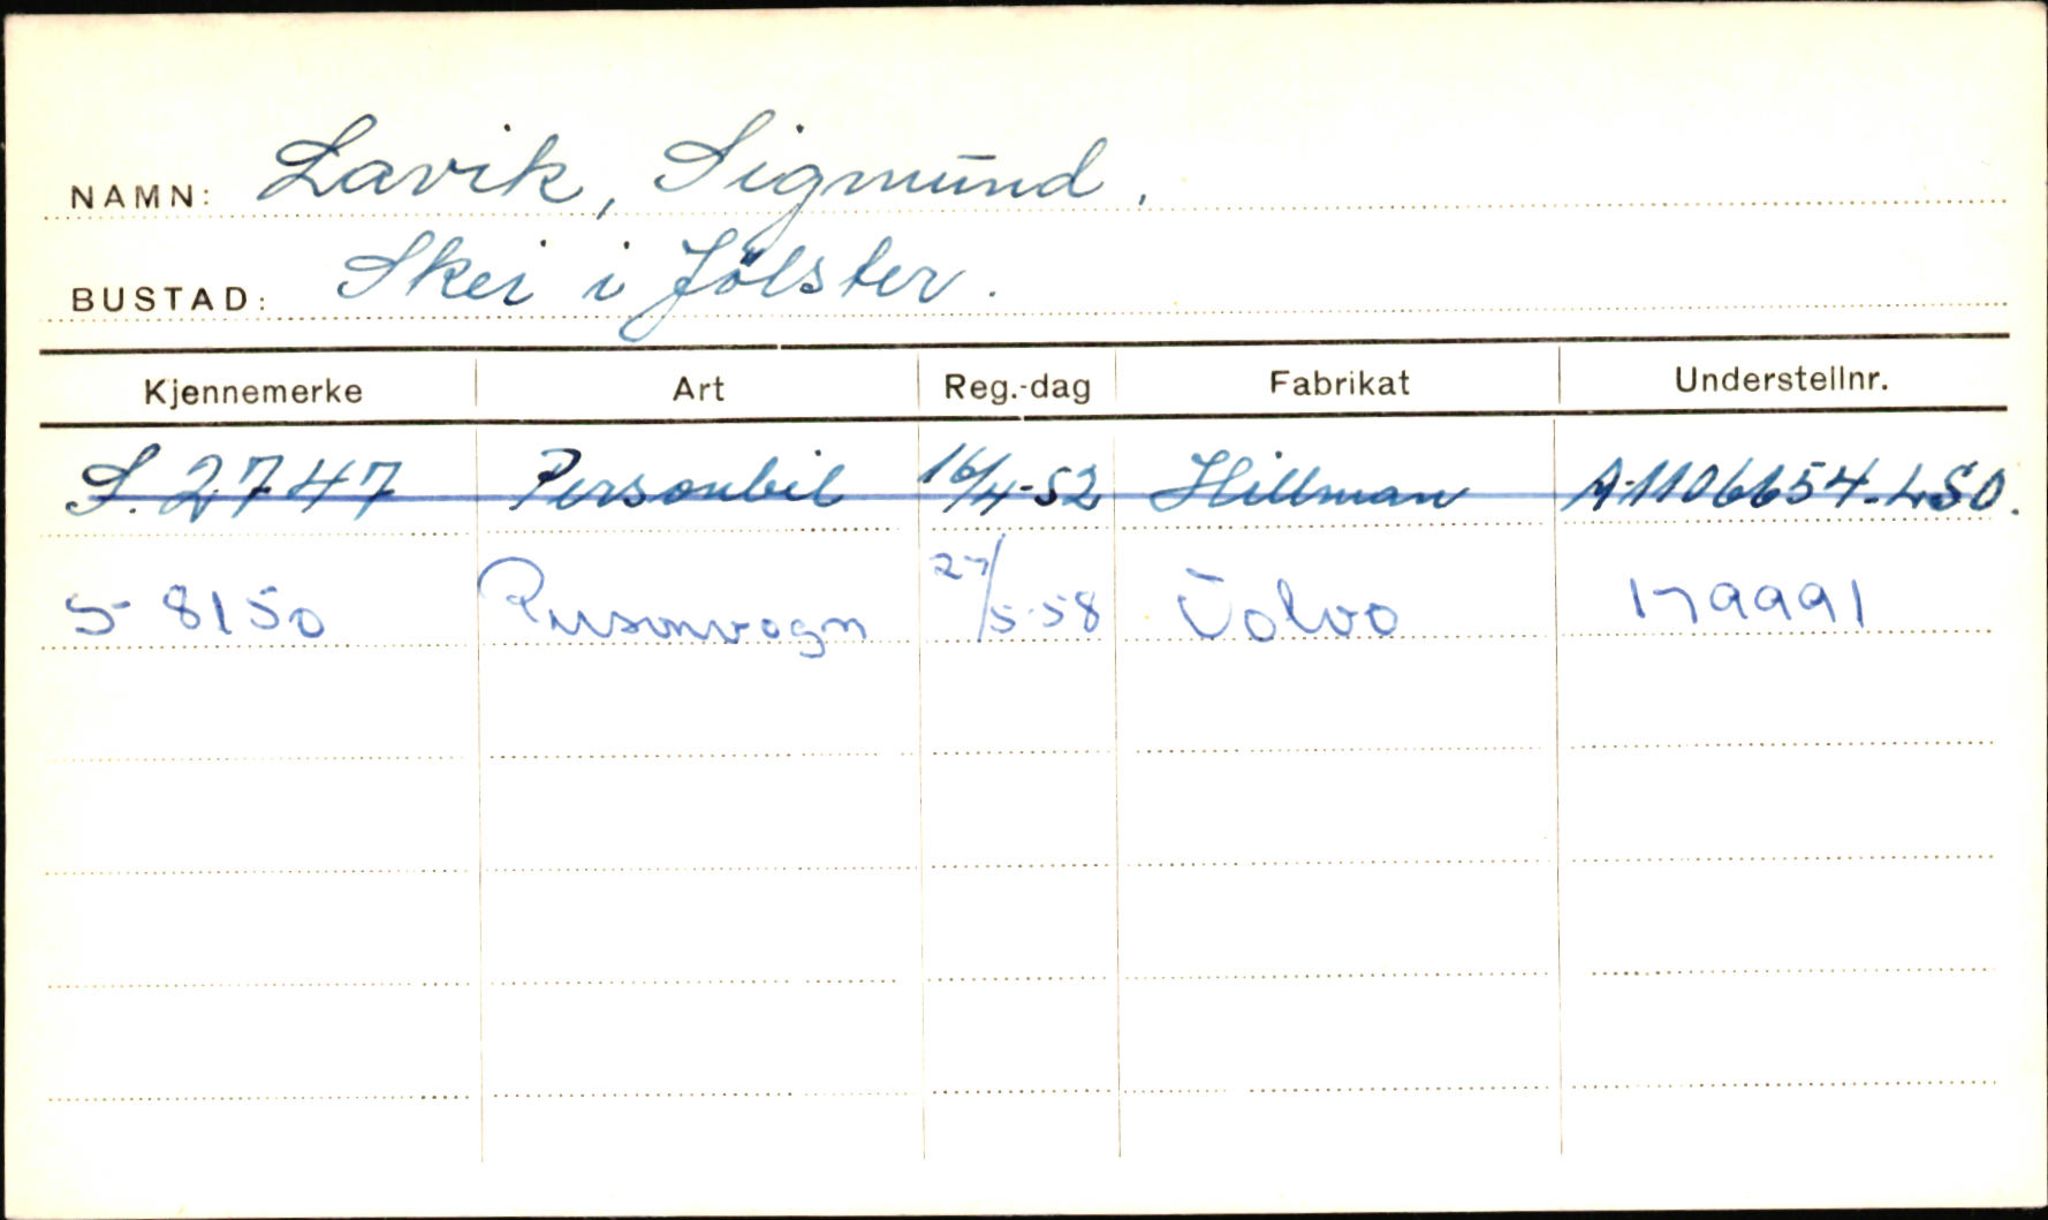 NAMN: Lavik, Sigmund.
BUSTAD: Skei i Jölster.
Kjennemerke Art Reg.-dag Fabrikat Understellnr.
S. 2747 Personbil 16/4-52 Hillman A-1106654-LSO.
S- 8150 Personvogn 27/5-58 Volvo 179991